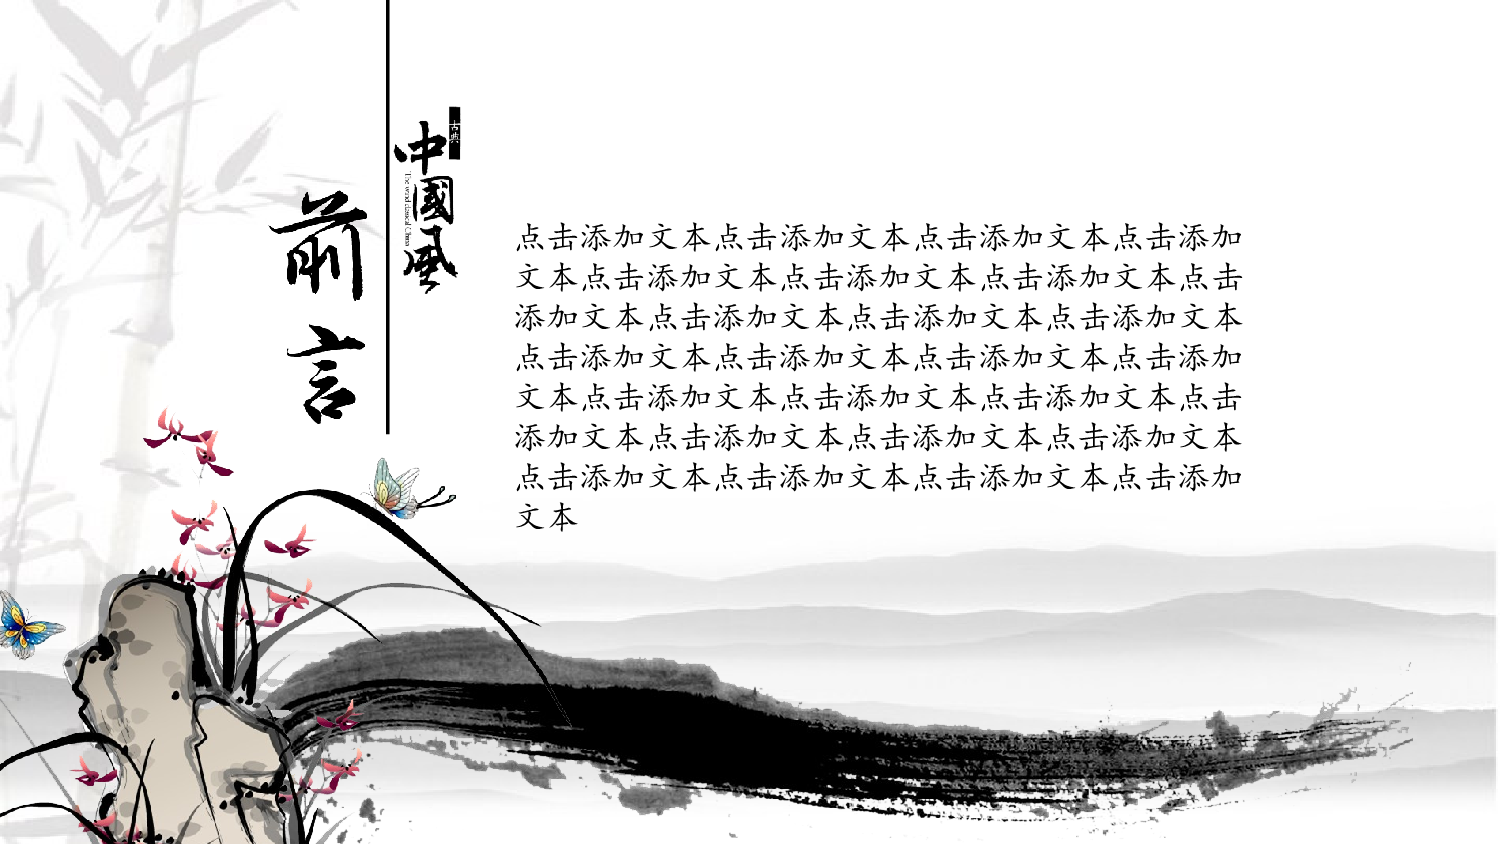 前言
古典
中國風
The world classical China
点击添加文本点击添加文本点击添加文本点击添加
文本点击添加文本点击添加文本点击添加文本点击
添加文本点击添加文本点击添加文本点击添加文本
点击添加文本点击添加文本点击添加文本点击添加
文本点击添加文本点击添加文本点击添加文本点击
添加文本点击添加文本点击添加文本点击添加文本
点击添加文本点击添加文本点击添加文本点击添加
文本